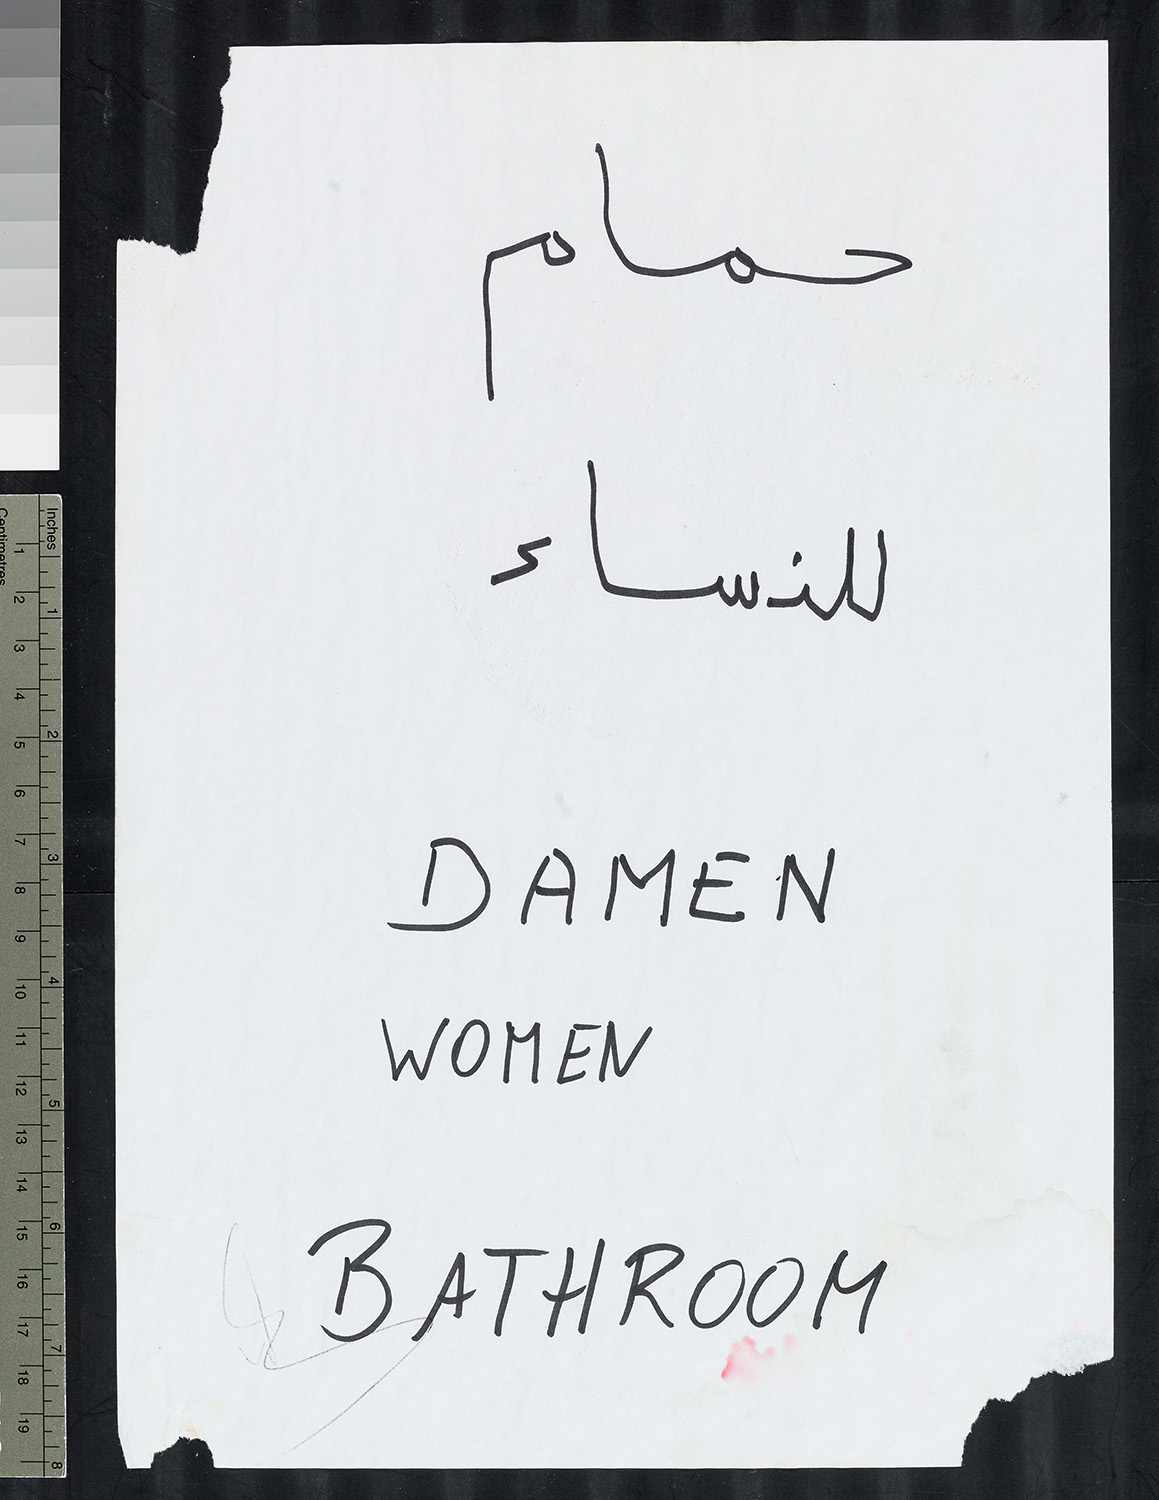 حمام
للنساء
DAMEN
WOMEN
BATHROOM
Inches
1
2
3
4
5
6
7
8
Centimetres
1
2
3
4
5
6
7
8
9
10
11
12
13
14
15
16
17
18
19